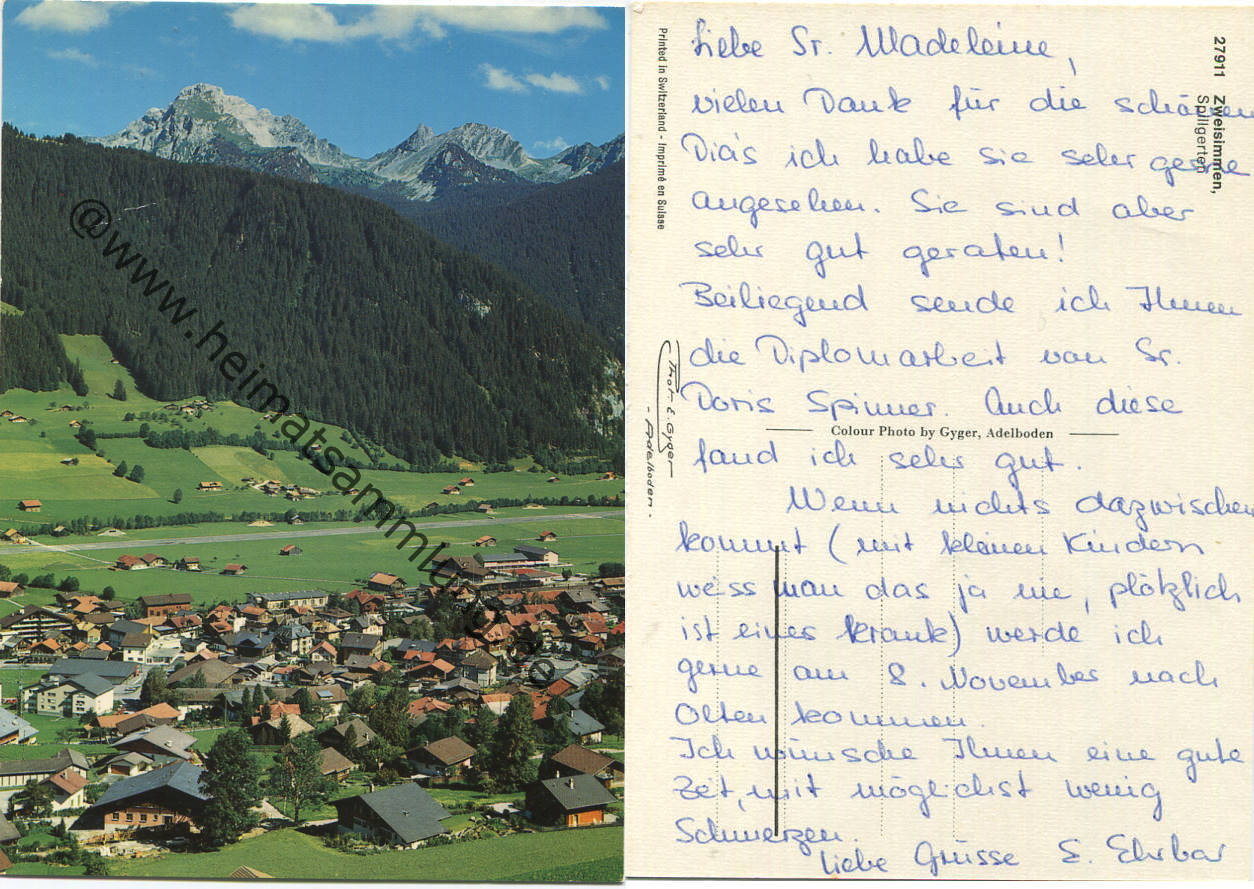 @www.heimatsammlung.de
Printed in Switzerland - Imprimé en Suisse
27911 Zweisimmen,
Spillgerten
Liebe Sr. Madeleine,
vielen Dank für die schönen
Dia's ich habe sie sehr gerne
angesehen. Sie sind aber
sehr gut geraten!
Beiliegend sende ich Ihnen
die Diplomarbeit von Sr.
Doris Spinner. Auch diese
fand ich sehr gut.
Wenn nichts dazwischen
kommt (mit kleinen Kindern
weiss man das ja nie, plötzlich
ist eines krank) werde ich
gerne am 8. November nach
Olten kommen.
Ich wünsche Ihnen eine gute
Zeit, mit möglichst wenig
Schmerzen.
Liebe Grüsse E. Ehrbar
Colour Photo by Gyger, Adelboden
Phot. E. Gyger
- Adelboden -